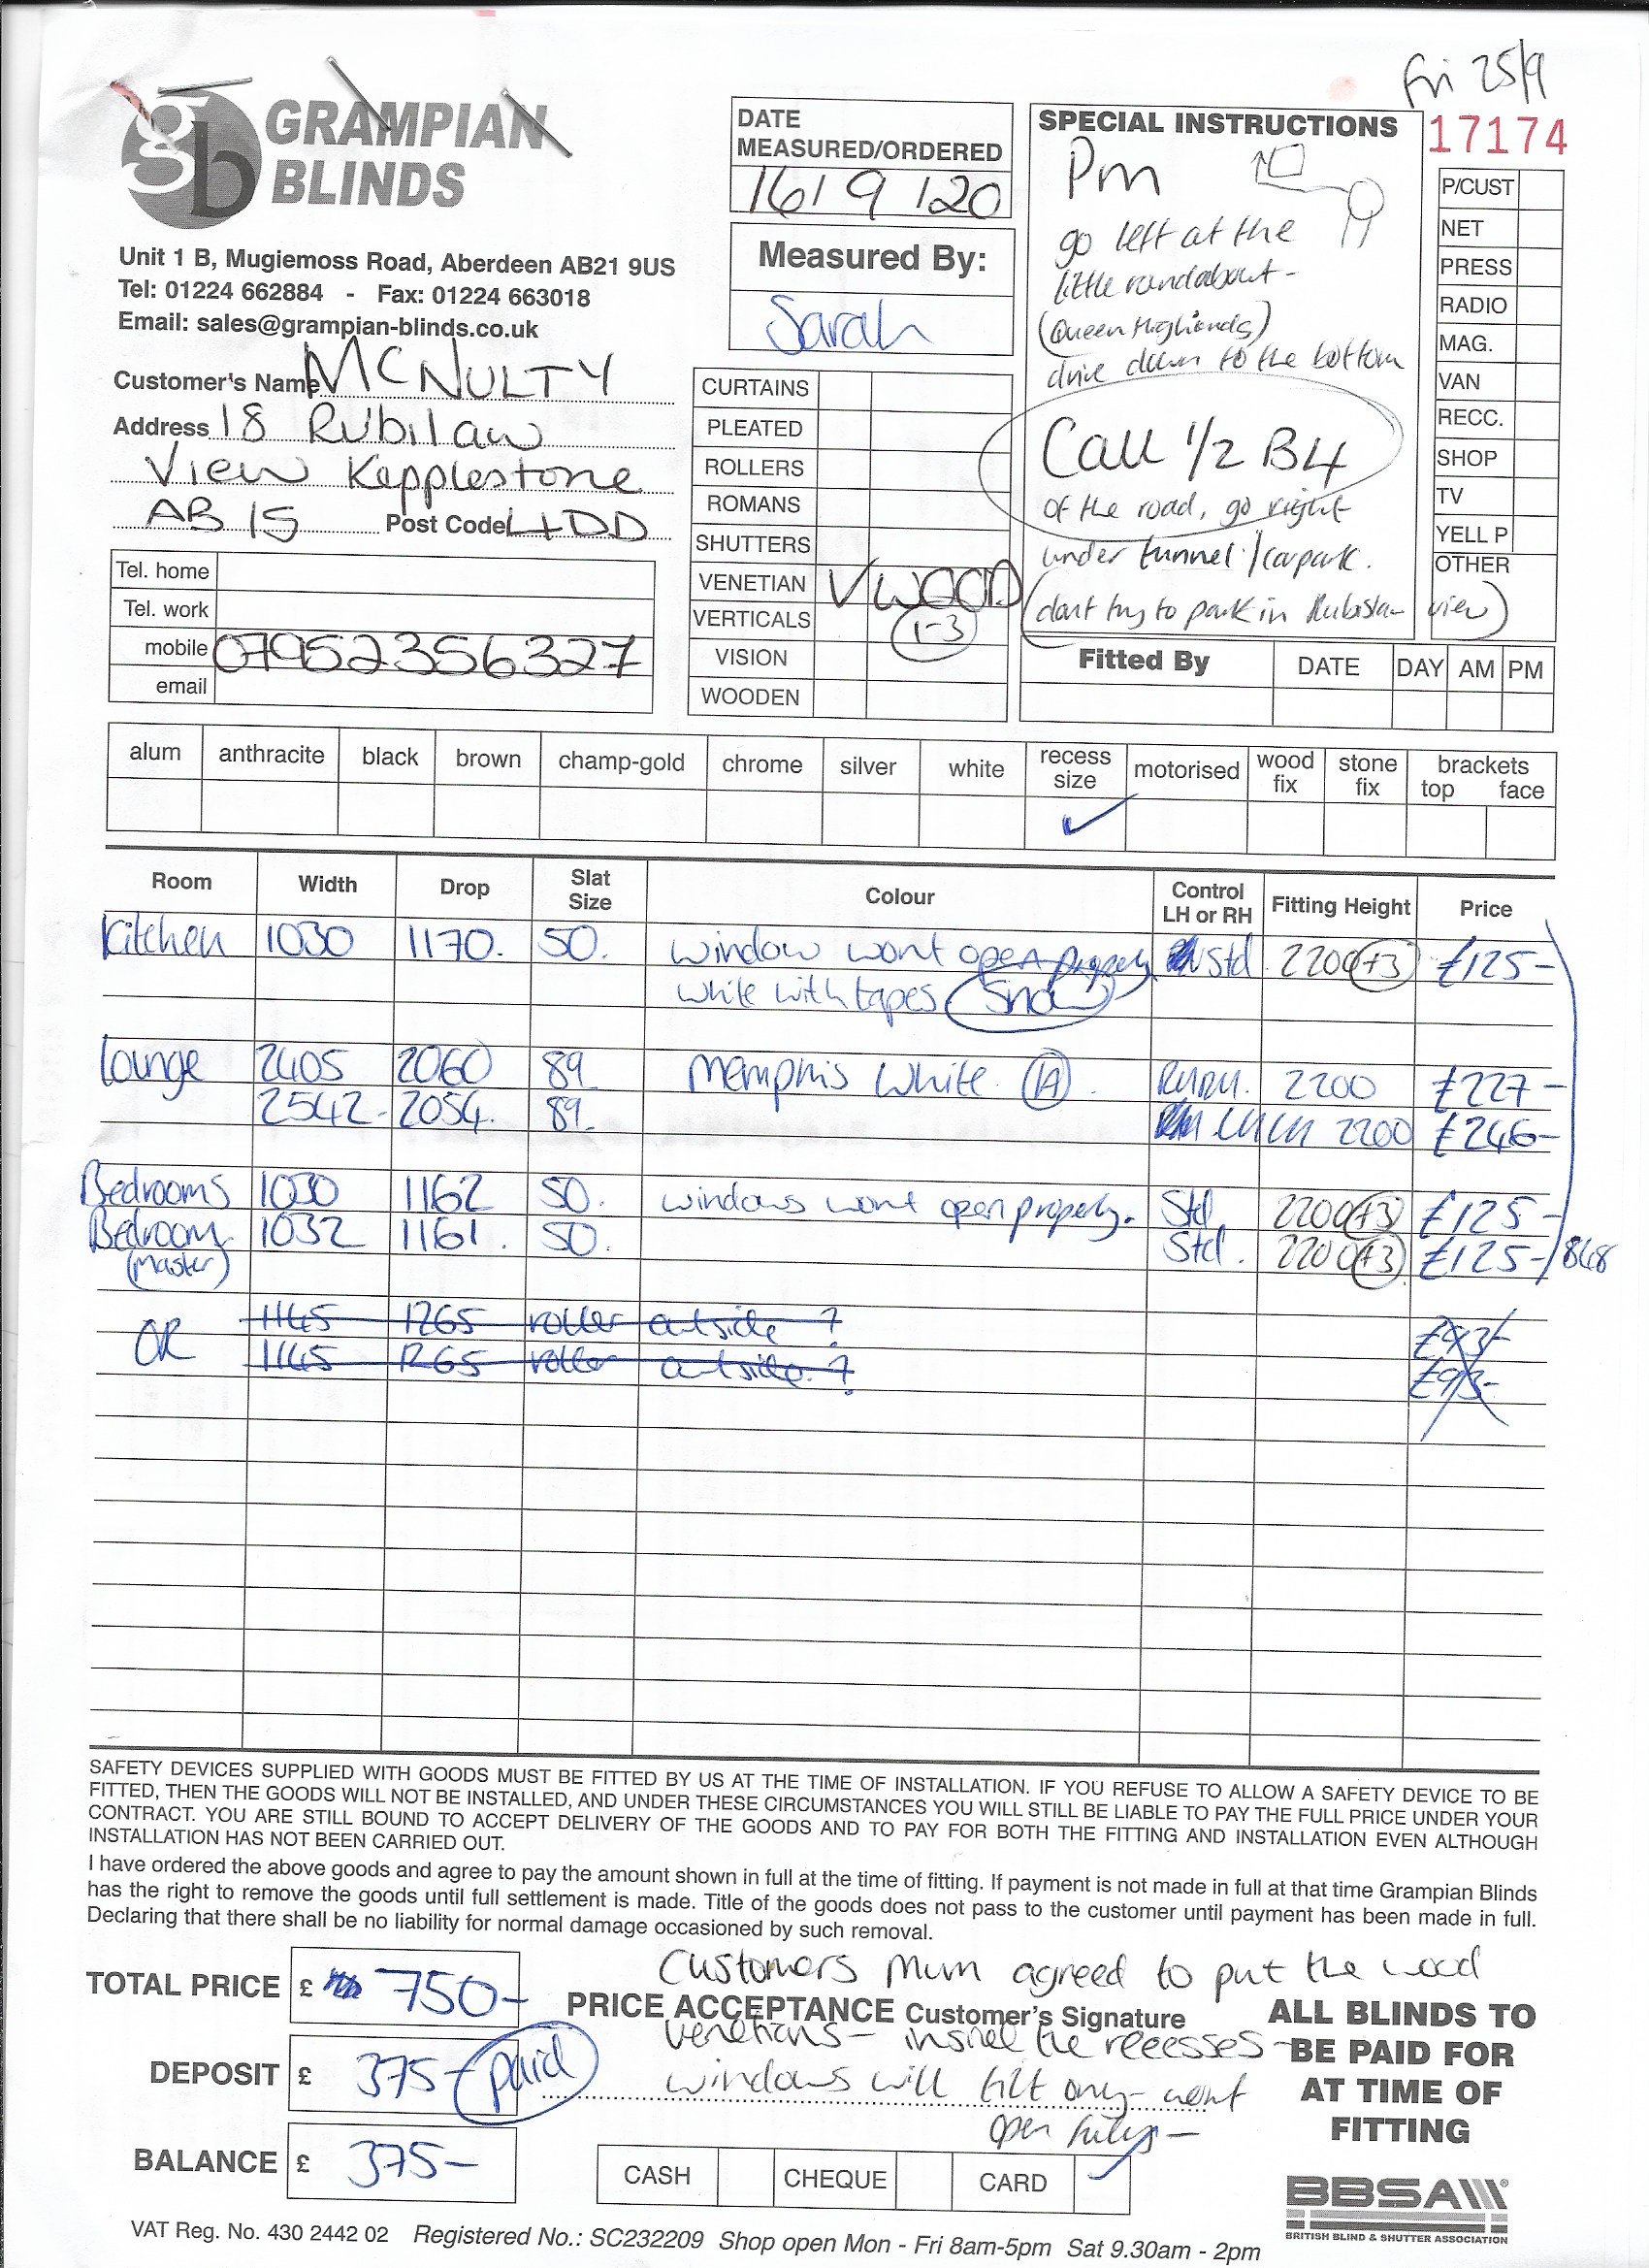 Fri 25/9
17174
gb GRAMPIAN
BLINDS
Unit 1 B, Mugiemoss Road, Aberdeen AB21 9US
Tel: 01224 662884 - Fax: 01224 663018
Email: sales@grampian-blinds.co.uk
Customer's Name MCNULTY
Address 18 Rubilaw
View Kepplestone
AB 15 Post Code 4DD
Tel. home
Tel. work
mobile 07952356327
email
DATE
MEASURED/ORDERED
16/9/20
Measured By:
Sarah
CURTAINS
PLEATED
ROLLERS
ROMANS
SHUTTERS
VENETIAN V WOOD
VERTICALS 1-3
VISION
WOODEN
SPECIAL INSTRUCTIONS
Pm
go left at the
little roundabout -
(Queen Highlands)
drive down to the bottom
Call 1/2 B4
of the road, go right
under tunnel/carpark.
(dont try to park in Rubislaw view)
P/CUST
NET
PRESS
RADIO
MAG.
VAN
RECC.
SHOP
TV
YELL P
OTHER
Fitted By DATE DAY AM PM
alum anthracite black brown champ-gold chrome silver white recess size motorised wood fix stone fix brackets top face
✓
Room Width Drop Slat Size Colour Control LH or RH Fitting Height Price
Kitchen 1030 1170. 50. window wont open properly Std 2200 +3 £125-
white with tapes Snow
Lounge 2405 2060 89 Memphis White. (A). RHRH. 2200 £227-
2542- 2054. 89. LHLH 2200 £246-
Bedrooms 1030 1162 50. windows wont open properly. Std. 2200 +3 £125-
Bedroom 1032 1161. 50. Std. 2200 +3 £125- /848
(Master)
1145 1265 roller outside ? £93-
OR
1145 1265 roller outside. ? £93-
SAFETY DEVICES SUPPLIED WITH GOODS MUST BE FITTED BY US AT THE TIME OF INSTALLATION. IF YOU REFUSE TO ALLOW A SAFETY DEVICE TO BE
FITTED, THEN THE GOODS WILL NOT BE INSTALLED, AND UNDER THESE CIRCUMSTANCES YOU WILL STILL BE LIABLE TO PAY THE FULL PRICE UNDER YOUR
CONTRACT. YOU ARE STILL BOUND TO ACCEPT DELIVERY OF THE GOODS AND TO PAY FOR BOTH THE FITTING AND INSTALLATION EVEN ALTHOUGH
INSTALLATION HAS NOT BEEN CARRIED OUT.
I have ordered the above goods and agree to pay the amount shown in full at the time of fitting. If payment is not made in full at that time Grampian Blinds
has the right to remove the goods until full settlement is made. Title of the goods does not pass to the customer until payment has been made in full.
Declaring that there shall be no liability for normal damage occasioned by such removal.
TOTAL PRICE £ 750-
DEPOSIT £ 375- paid
BALANCE £ 375-
Customers Mum agreed to put the wood
PRICE ACCEPTANCE Customer's Signature
venetians - inside the recesses -
windows will tilt only - wont
open fully -
CASH CHEQUE CARD ✓
ALL BLINDS TO
BE PAID FOR
AT TIME OF
FITTING
BBSA
BRITISH BLIND & SHUTTER ASSOCIATION
VAT Reg. No. 430 2442 02 Registered No.: SC232209 Shop open Mon - Fri 8am-5pm Sat 9.30am - 2pm